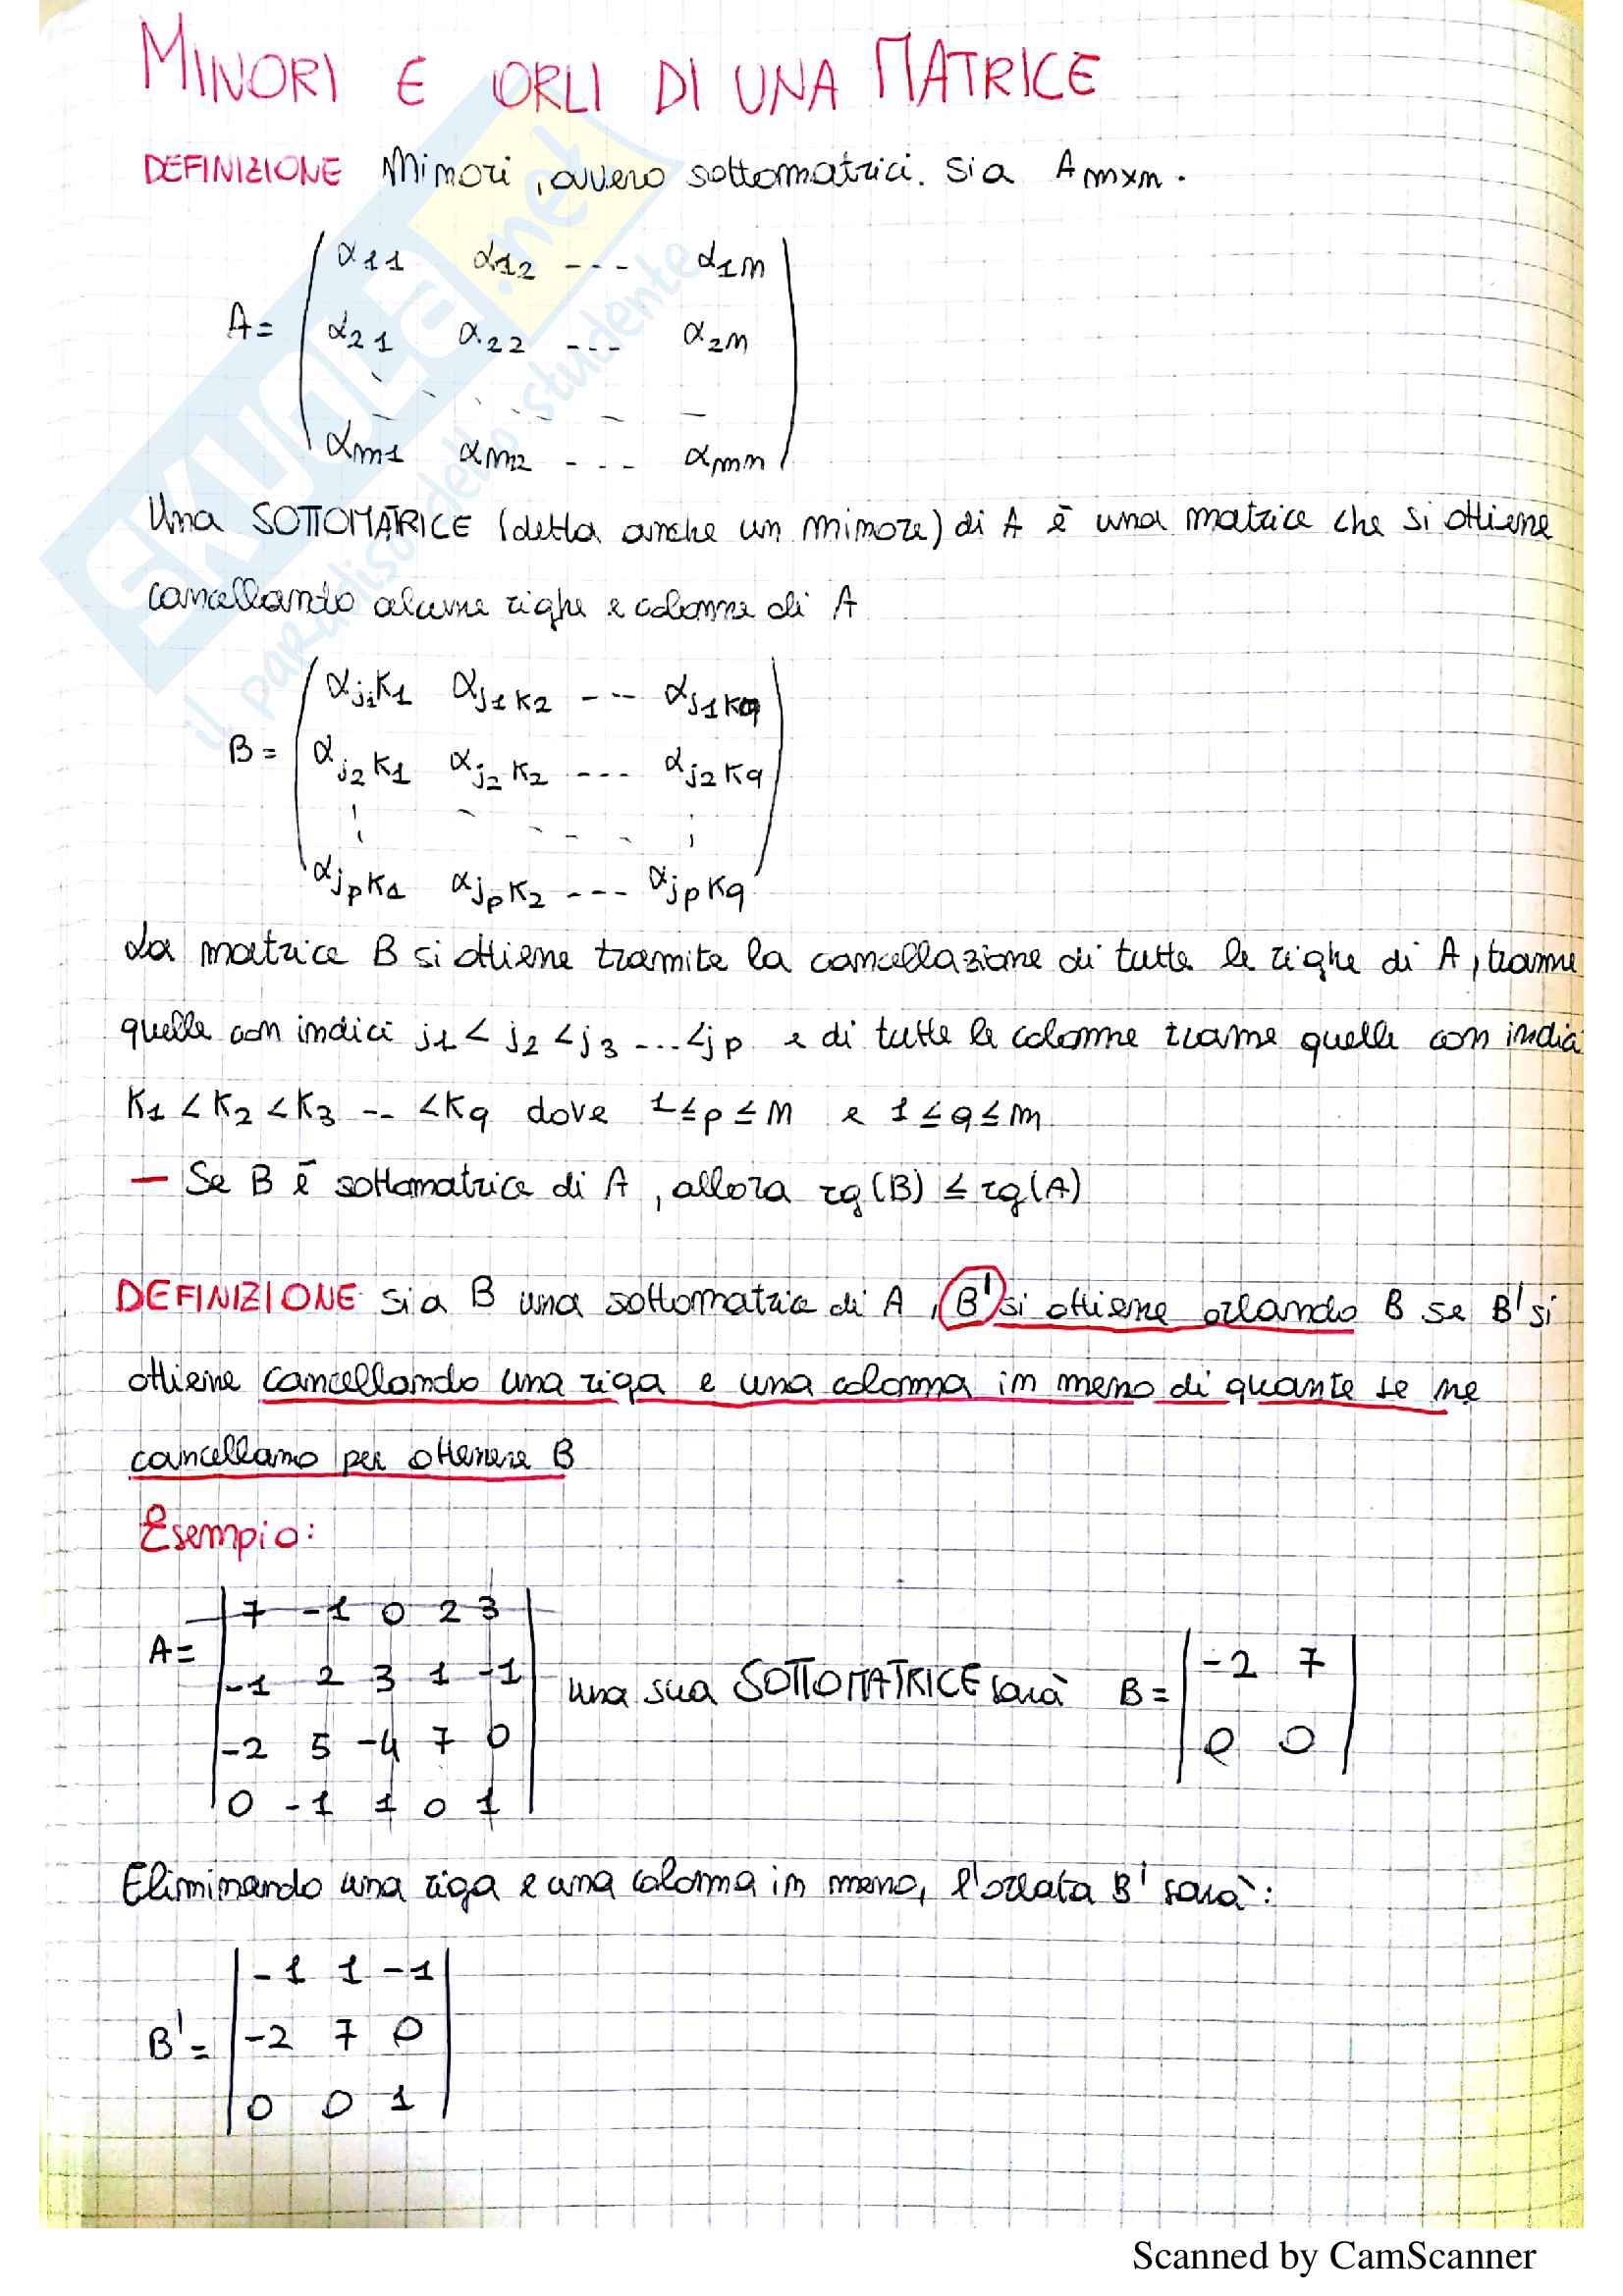 MINORI E ORLI DI UNA MATRICE
DEFINIZIONE Minori, ovvero sottomatrici. Sia A m×n.
α11 α12 --- α1n
A= α21 α22 --- α2n
αm1 αm2 --- αmn
Una SOTTOMATRICE (detta anche un minore) di A è una matrice che si ottiene
cancellando alcune righe e colonne di A
αj1k1 αj1k2 --- αj1kq
B= αj2k1 αj2k2 --- αj2kq
αjpk1 αjpk2 --- αjpkq
La matrice B si ottiene tramite la cancellazione di tutte le righe di A, tranne
quelle con indici j1 < j2 < j3 ... < jp e di tutte le colonne tranne quelle con indici
K1 < K2 < K3 -- < Kq dove 1 ≤ p ≤ m e 1 ≤ q ≤ n
— Se B è sottomatrice di A, allora rg(B) ≤ rg(A)
DEFINIZIONE sia B una sottomatrice di A, B' si ottiene orlando B se B' si
ottiene cancellando una riga e una colonna in meno di quante se ne
cancellano per ottenere B
Esempio:
7 -1 0 2 3
A= -1 2 3 1 -1
-2 5 -4 7 0
0 -1 1 0 1
una sua SOTTOMATRICE sarà B= -2 7
0 0
Eliminando una riga e una colonna in meno, l'orlata B' sarà:
-1 1 -1
B'= -2 7 0
0 0 1
SKUOLA.net
il paradiso dello studente
Scanned by CamScanner